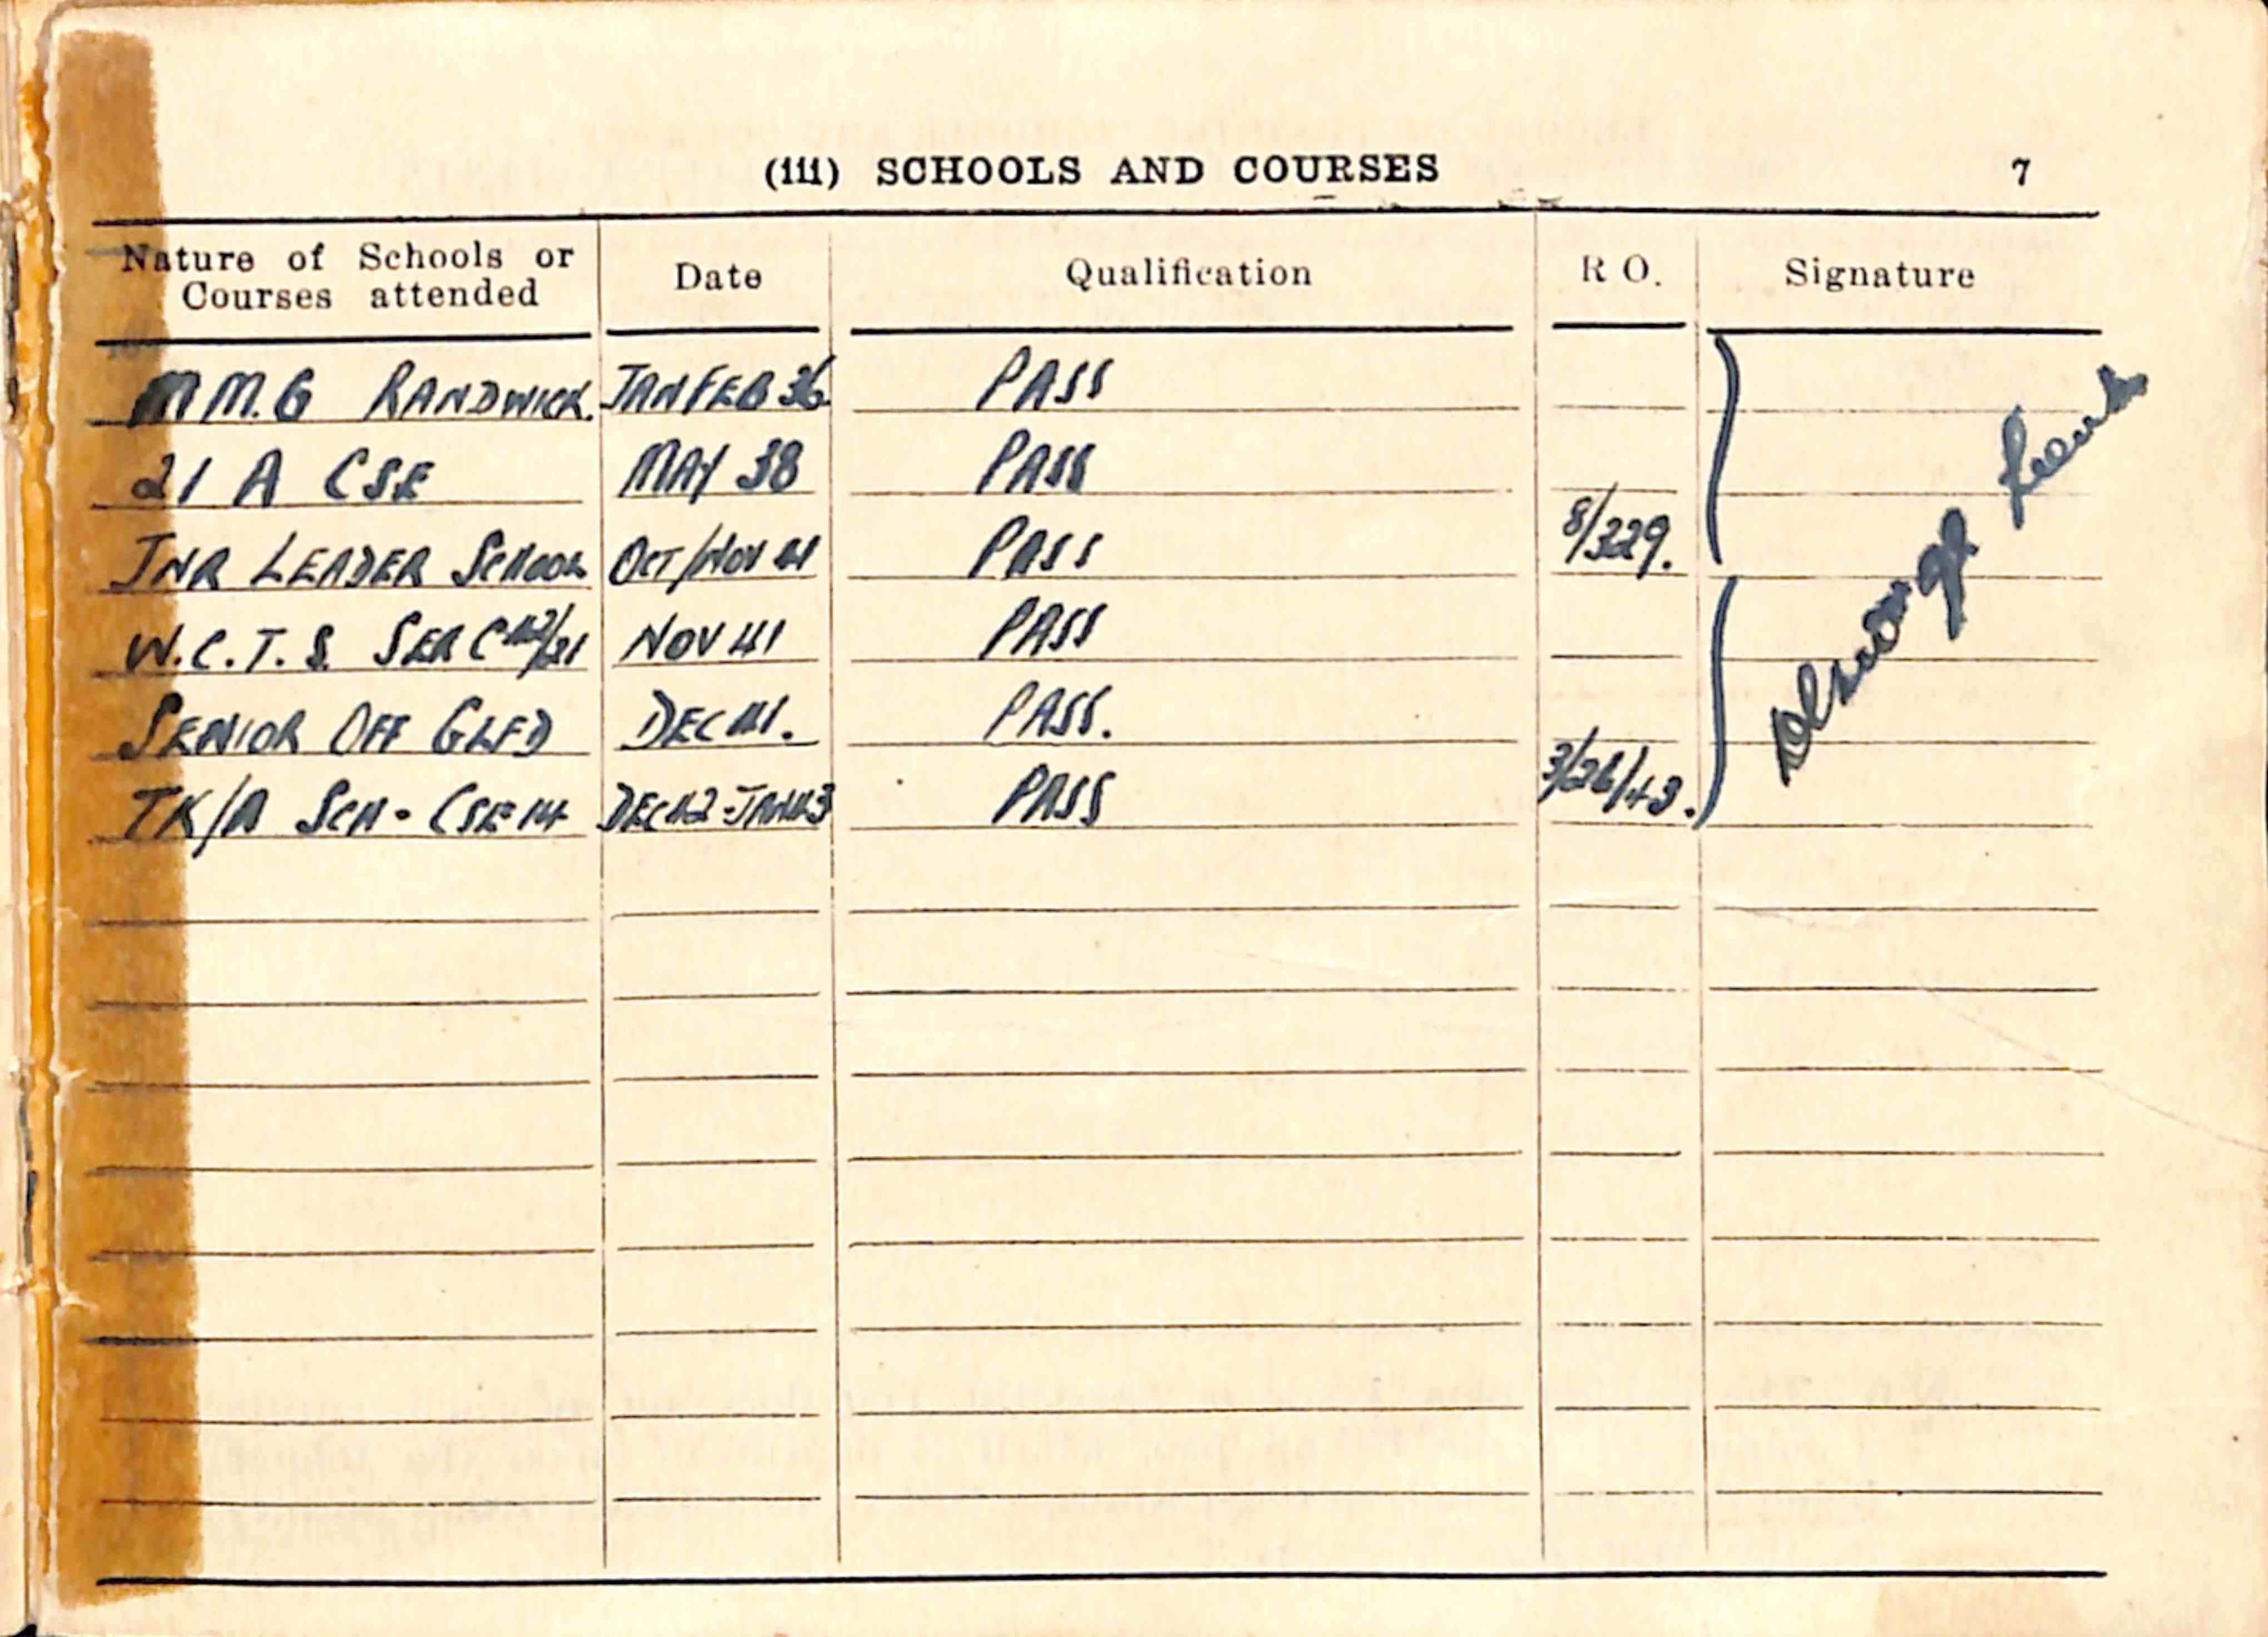 (iii) SCHOOLS AND COURSES 7
Nature of Schools or Courses attended Date Qualification R O. Signature
M M.G RANDWICK. JAN FEB 36 PASS
21 A CSE MAY 38 PASS
JNR LEADER SCHOOL OCT/NOV 41 PASS 8/329.
W.C.T.S. SER NOV 41 PASS
SENIOR OFF GLFD DEC 41. PASS.
TK/A SCH - CSE 14 DEC 42 - JAN 43 PASS 3/26/43.